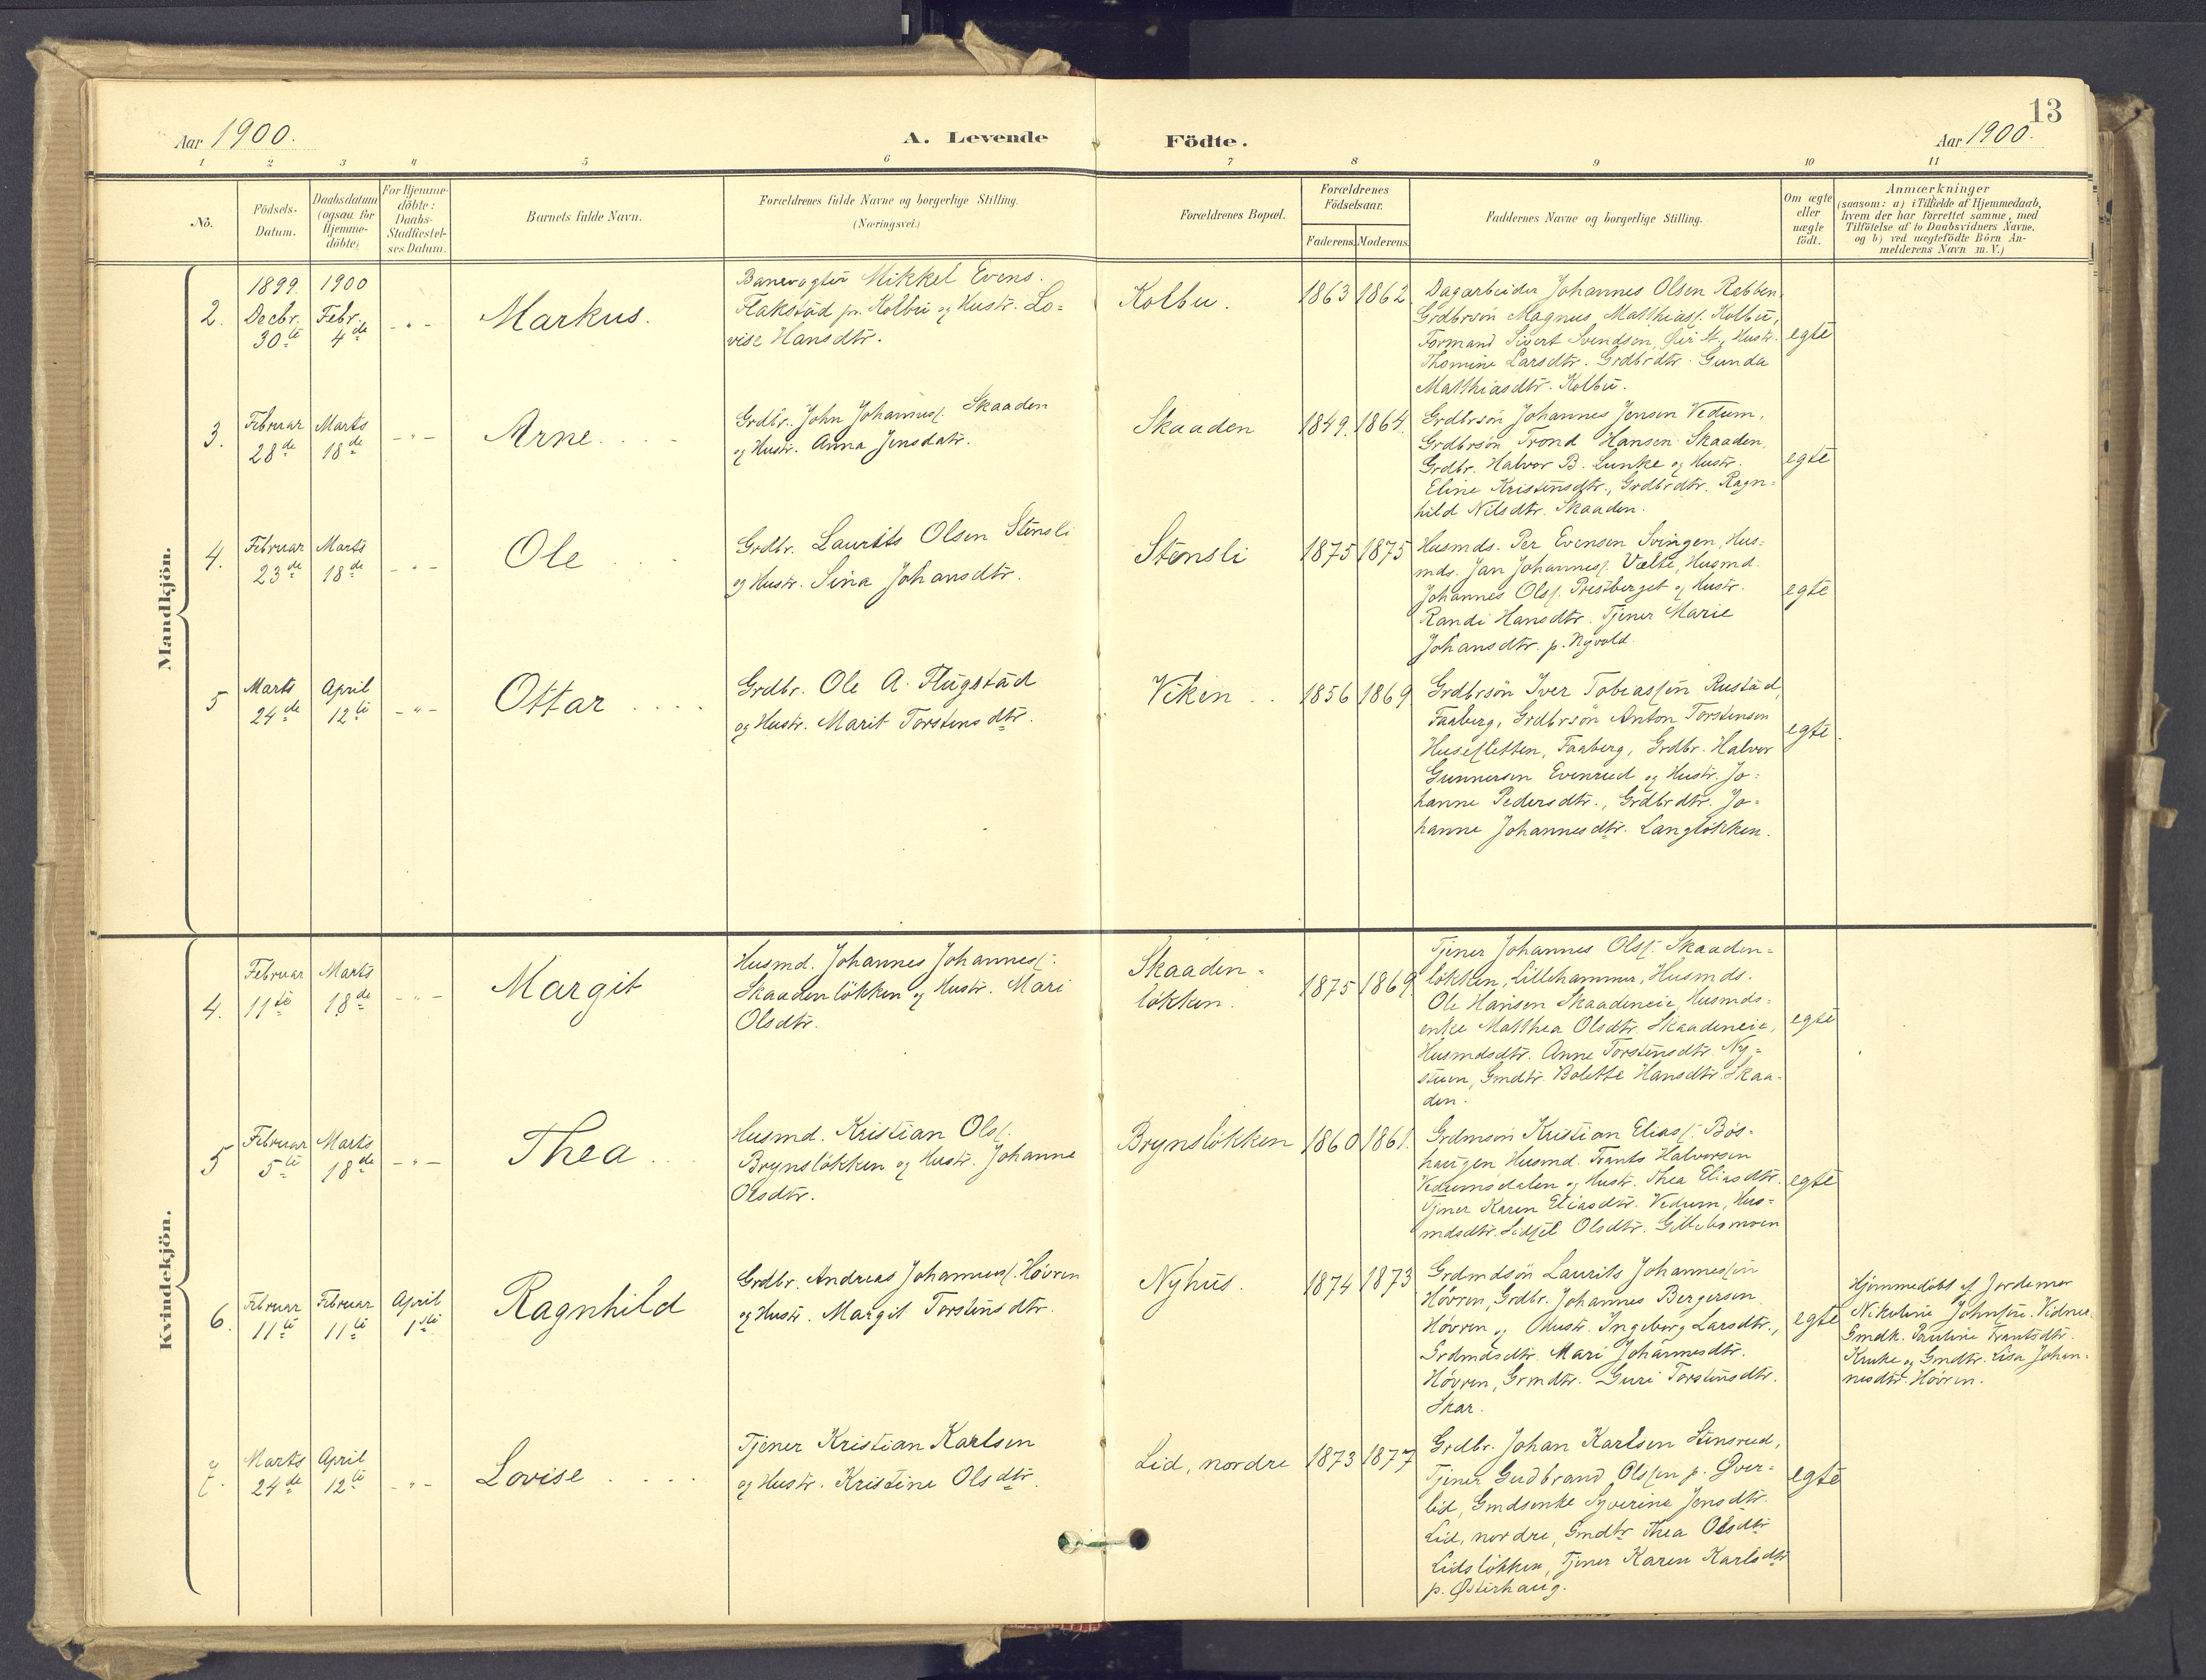 13
Aar 1900.
A. Levende Födte.
Aar 1900.
1 2 3 4 5 6 7 8 9 10 11
No.
Födsels-
Datum.
Daabsdatum
(ogsaa for
Hjemme-
döbte)
For Hjemme-
döbte:
Daabs-
Stadfæstel-
ses Datum.
Barnets fulde Navn.
Forældrenes fulde Navne og borgerlige Stilling.
(Næringsvei.)
Forældrenes Bopæl.
Forældrenes
Födselsaar.
Faderens.
Moderens.
Faddernes Navne og borgerlige Stilling.
Om ægte
eller
uægte
födt.
Anmærkninger
(saasom: a) i Tilfælde af Hjemmedaab,
hvem der har forrettet samme, med
Tilföielse af to Daabsvidners Navne.
og b) ved uægtefödte Börn An-
melderens Navn m. V.)
Mandkjön.
2.
1899.
Decbr.
30te
1900
Febr.
4de
- " -
Markus.
Banevogter Mikkel Evens.
Flakstad p. Kolbu og Hustr. Lo=
vise Hansdtr.
Kolbu.
1863
1862
Dagarbeider Johannes Olsen Rabben,
Grdbrsøn Magnus Matthiass. Kolbu,
Formand Sivert Svendsen, Øier St., Hustr.
Thomine Larsdtr. Grdbrdtr. Gunda
Matthiasdtr. Kolbu.
egte
3.
Februar
28de
Marts
18de
- " -
Arne.
Grdbr. John Johanness. Skaaden
og Hustr. Anna Jensdatr.
Skaaden
1849.
1864.
Grdbrsøn Johannes Jensen Vedum,
Grdbrsøn Trond Hansen Skaaden,
Grdbr. Halvor B. Lunke og Hustr.
Eline Kristensdtr., Grdbrdtr. Ragn=
hild Nilsdtr. Skaaden.
egte
4.
Februar
23de
Marts
18de
- " -
Ole
Grdbr. Laurits Olsen Stensli
og Hustr. Sina Johansdtr.
Stensli
1875
1875
Husmds. Per Evensen Svingen, Hus=
mds. Jan Johanness. Vælte, Husmd.
Johannes Olss. Prestberget og Hustr.
Randi Hansdtr. Tjener Marie
Johansdtr. p. Nyvold.
egte
5
Marts
24de
April
12te
- " -
Ottar
Grdbr. Ole A. Flugstad
og Hustr. Marit Torstensdtr.
Viken
1856
1869
Grdbrsøn Iver Tobiassen Rustad,
Faaberg, Grdbrsøn Anton Torstensen
Husesletten, Faaberg, Grdbr. Halvor
Gunnersen Evenrud og Hustr. Jo=
hanne Pedersdtr., Grdbrdtr. Jo=
hanne Johannesdtr. Langløkken.
egte.
Kvindekjön.
4.
Februar
11te
Marts
18de
- " -
Margit
Husmd. Johannes Johanness.
Skaadenløkken og Hustr. Mari
Olsdtr.
Skaaden=
løkken.
1875
1869.
Tjener Johannes Olss. Skaaden=
løkken, Lillehammer, Husmds.
Ole Hansen Skaadeneie, Husmds=
enke Matthea Olsdtr. Skaadeneie,
Husmdsdtr. Anne Torstensdtr. Ny=
stuen, Gmdtr. Bolette Hansdtr. Skaa=
den.
egte
5
Februar
5te
Marts
18de
- " -
Thea
Husmd. Kristian Olss.
Brynsløkken og Hustr. Johanne
Olsdtr.
Brynsløkken
1860
1861.
Grdmsøn Kristian Eliass. Bøs=
haugen Husmd. Frants Halvorsen
Vedumsdalen og Hustr. Thea Eliasdtr.
Tjener Karen Eliasdtr. Vedum, Hus=
mdsdtr. Sidsel Olsdtr. Gillebomoen
egte
6.
Februar
11te
Februar
11te
April
1ste
Ragnhild
Grdbr. Andreas Johanness. Høvren
og Hustr. Margit Torstensdtr.
Nyhus.
1874
1873
Grdmdsøn Laurits Johannessen
Høvren, Grdbr. Johannes Bergersen
Høvren og Hustr. Ingeborg Larsdtr.,
Grdmdsdtr. Mari Johannesdtr.
Høvren, Grmdtr. Guri Torstensdtr.
Skar.
egte
Hjemmedøbt af Jordemor
Nikoline Johnsen. Vidner
Gmdk. Pauline Frantsdtr.
Kruke og Gmdtr. Lisa Johan=
nesdtr. Høvren.
7.
Marts
24de
April
12te
- " -
Lovise
Tjener Kristian Karlsen
og Hustr. Kristine Olsdtr.
Lid, nordre
1873
1877
Grdbr. Johan Karlsen Stensrud,
Tjener Gudbrand Olssen p. Øver=
lid, Gmdsenke Syverine Jensdtr.
Lid, nordre, Gmdtr Thea Olsdtr
Lidsløkken, Tjener Karen Karlsdtr
p. Østerhaug.
egte